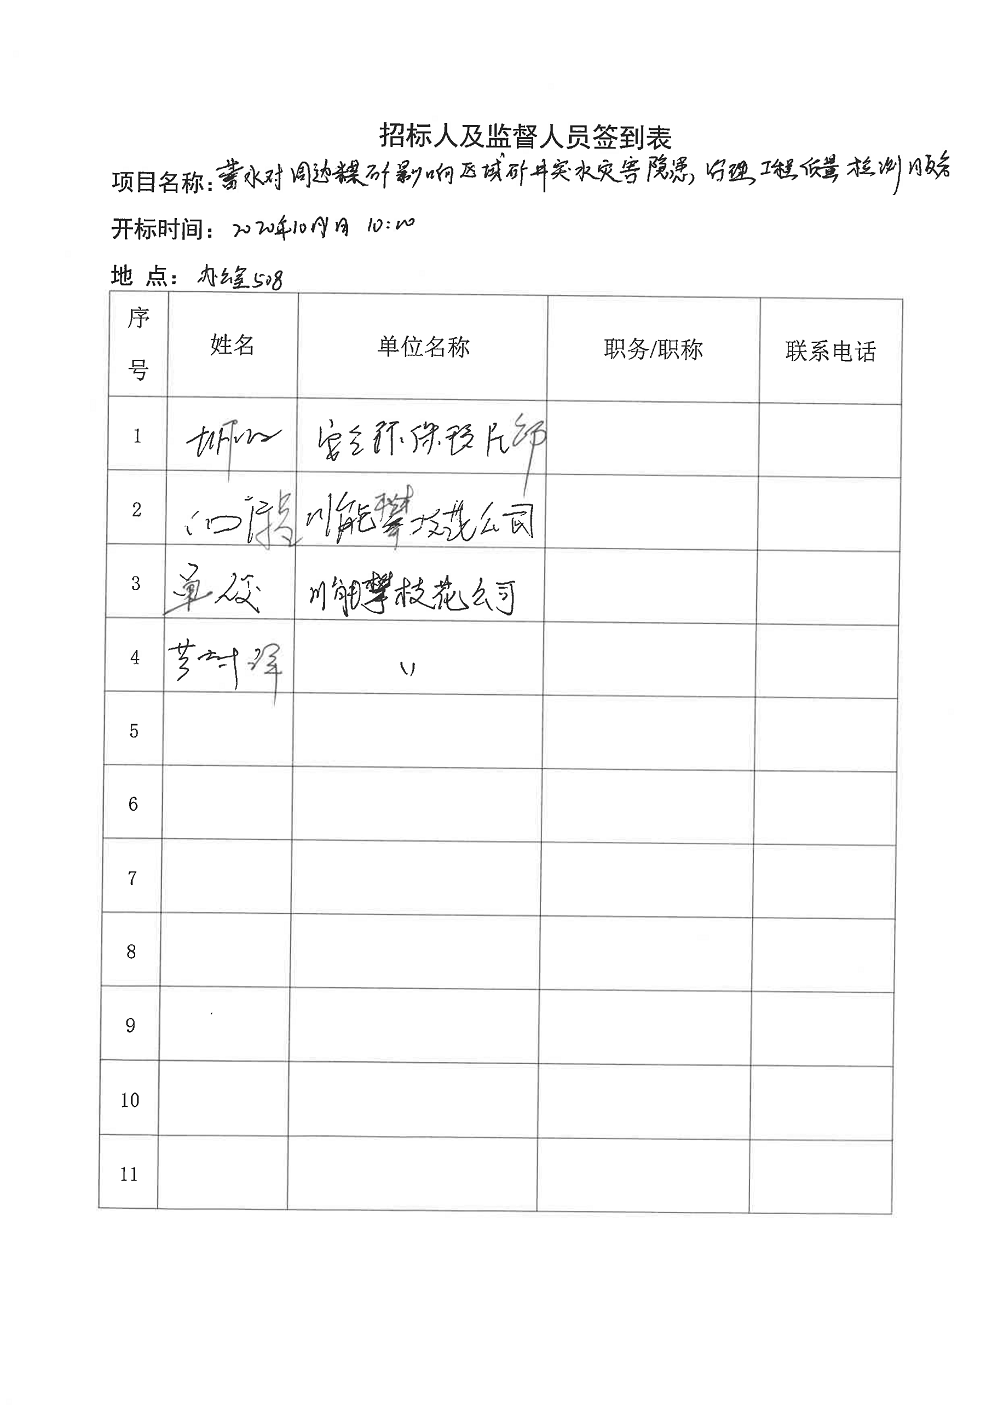 招标人及监督人员签到表
项目名称：蓄水对周边煤矿影响区域矿井突水灾害隐患治理工程质量检测服务
开标时间： 2020年10月 日 10:00
地 点： 办公室508
序号 姓名 单位名称 职务/职称 联系电话
1 安全环保
2 川能攀枝花公司
3 单 川能攀枝花公司
4 〃
5
6
7
8
9
10
11